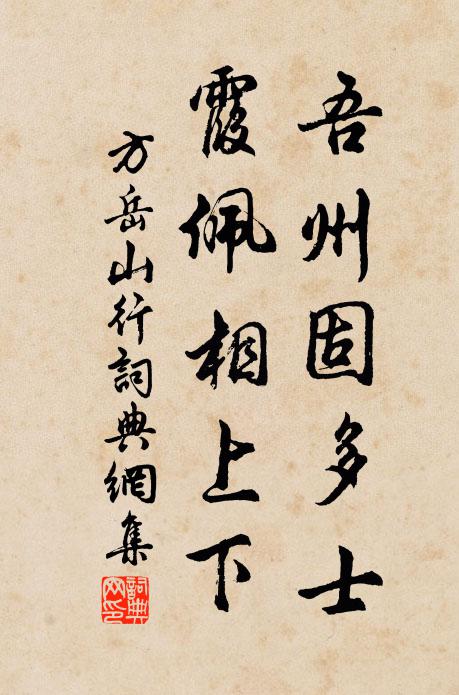 吾州固多士
霞佩相上下
方岳山行詞典網集
詞典網印